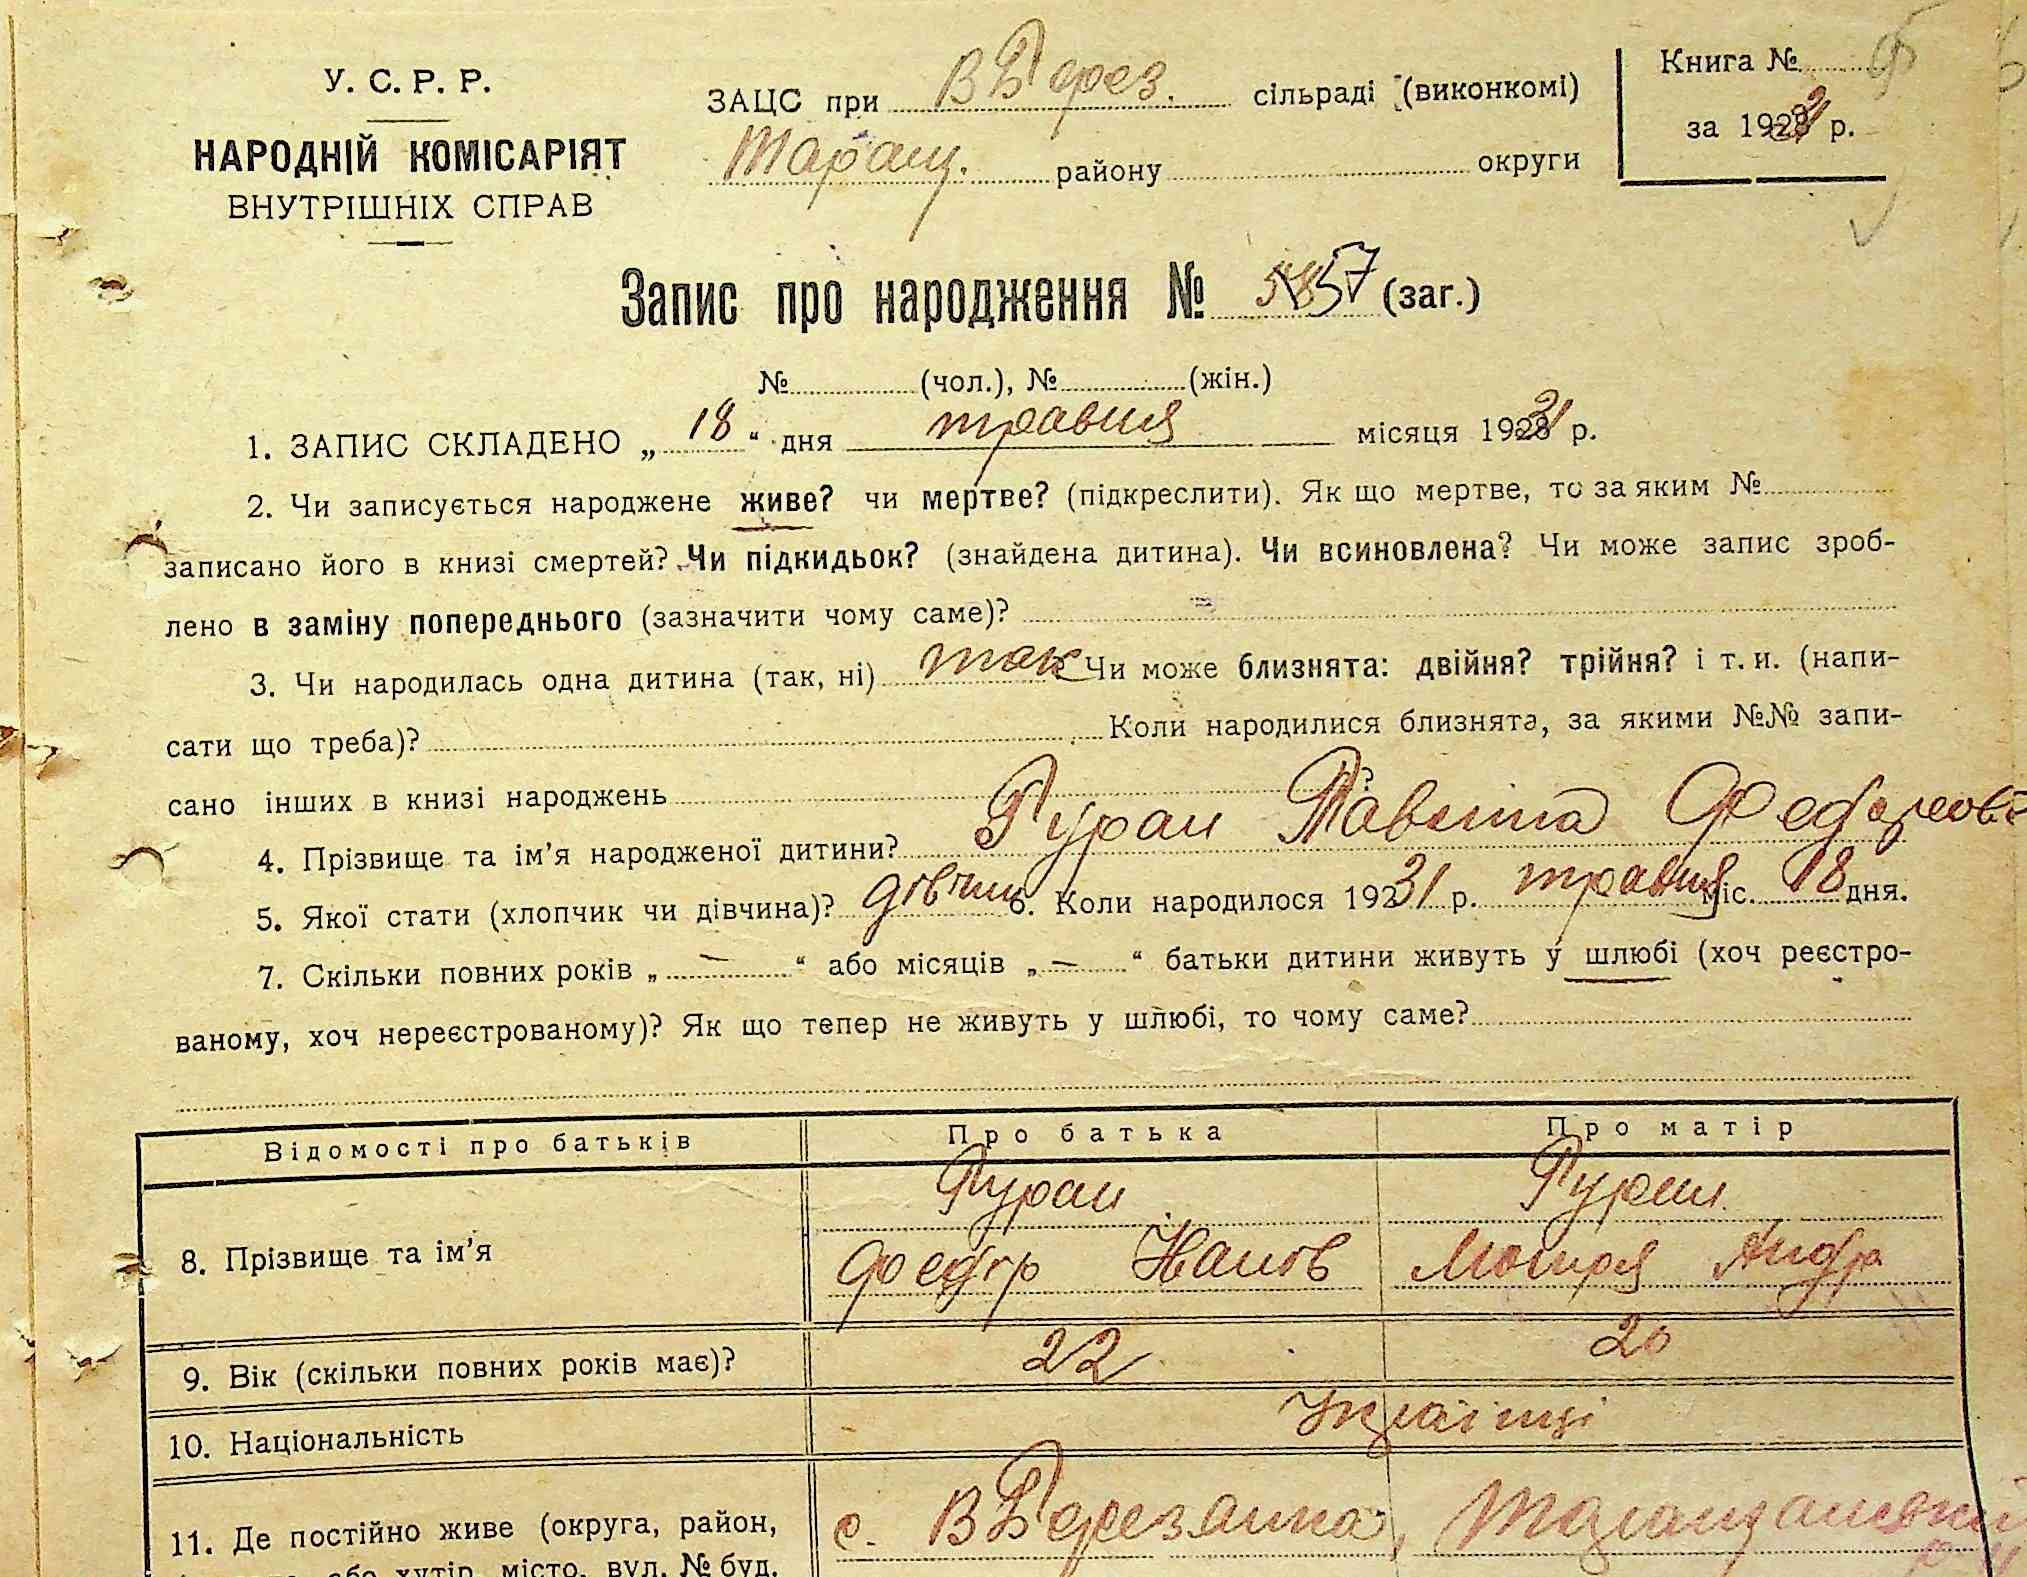 У. С. Р. Р.
НАРОДНІЙ КОМІСАРІЯТ
ВНУТРІШНІХ СПРАВ
ЗАЦС при В Берез. сільраді (виконкомі)
Таращ. району округи
Книга №
за 1931 р.
Запис про народження № 57 (заг.)
№ (чол.), № (жін.)
1. ЗАПИС СКЛАДЕНО „ 18 “ дня травня місяця 1931 р.
2. Чи записується народжене живе? чи мертве? (підкреслити). Як що мертве, то за яким №
записано його в книзі смертей? Чи підкидьок? (знайдена дитина). Чи всиновлена? Чи може запис зроб-
лено в заміну попереднього (зазначити чому саме)?
3. Чи народилась одна дитина (так, ні) так Чи може близнята: двійня? трійня? і т. и. (напи-
сати що треба)? Коли народилися близнята, за якими №№ запи-
сано інших в книзі народжень ?
4. Прізвище та ім’я народженої дитини? Гуран
5. Якої стати (хлопчик чи дівчина)? дівчин 6. Коли народилося 1931 р. травня міс. 18 дня.
7. Скільки повних років „ — “ або місяців „ — “ батьки дитини живуть у шлюбі (хоч реєстро-
ваному, хоч нереєстрованому)? Як що тепер не живуть у шлюбі, то чому саме?
Відомості про батьків Про батька Про матір
8. Прізвище та ім’я Гуран Гуран
Федір Андр
9. Вік (скільки повних років має)? 22 20
10. Національність Українці
11. Де постійно живе (округа, район, с. В Березанка, Таращанський
або хутір, місто, вул. № буд.